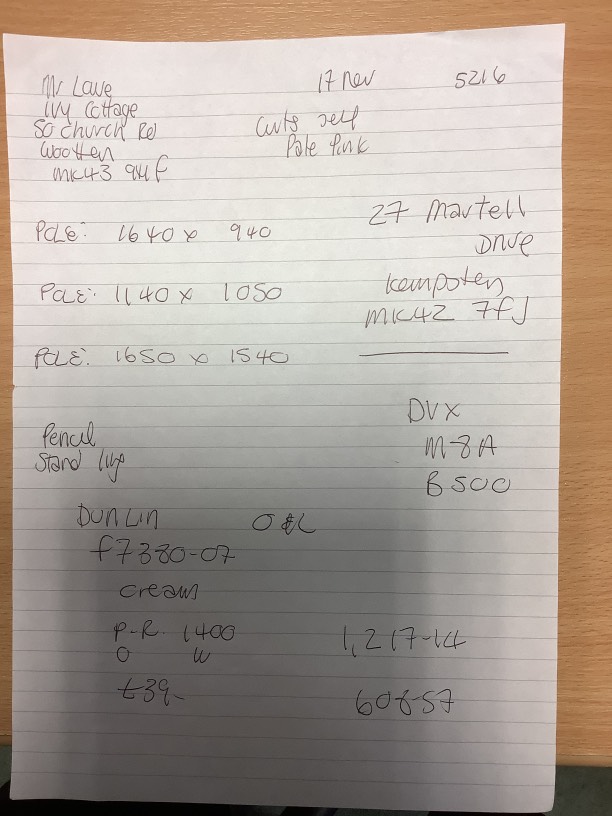 Mr Lowe 17 Nov 5216
Ivy Cottage
50 Church Rd Curts self
Wootten Pale Pink
MK43 9HF
27 Martell
POLE: 1640 x 940 Drive
POLE: 1140 x 1050 Kempsten
MK42 7FJ
POLE: 1650 x 1540
DVX
Pencil M-8A
Stand B500
DUNLIN O &L
F7380-07
cream
P-R 1400 1,217-14
O W
£39- 608-57